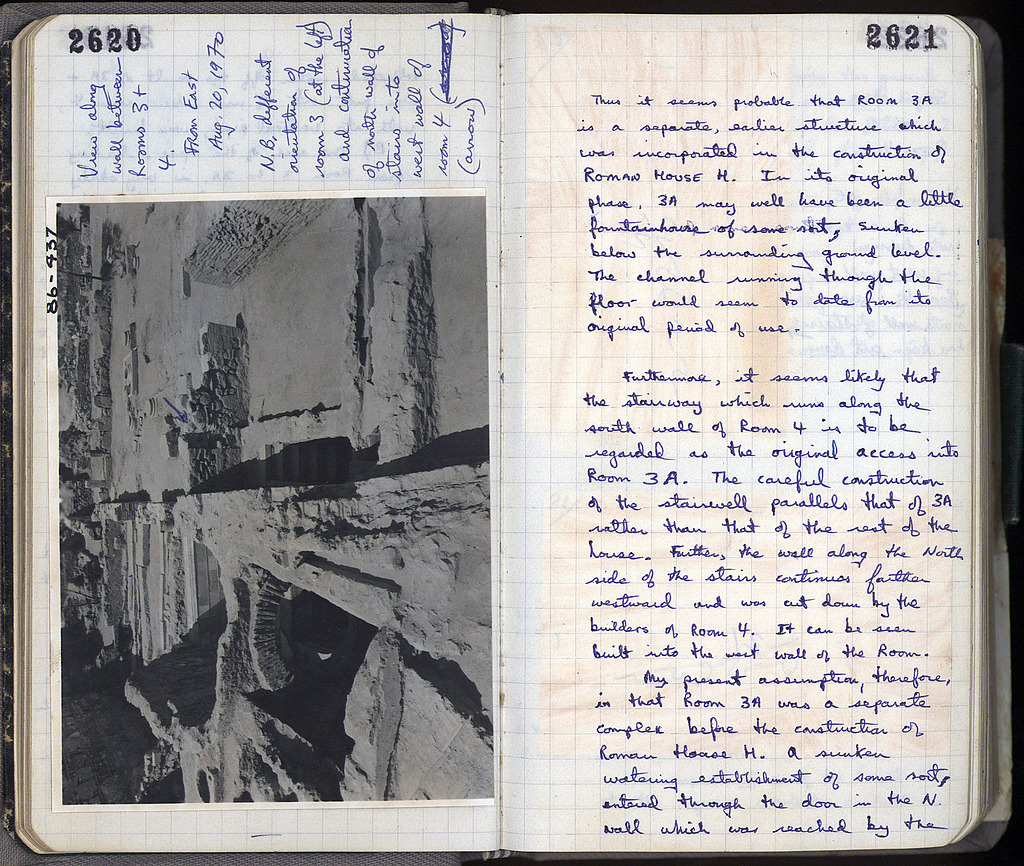 2620
View along
wall between
Rooms 3 +
4.
From East
Aug. 20, 1970
N.B. different
orientation of
room 3 (at the left)
and continuation
of north wall of
stairs into
west wall of
room 4
(arrow)
86-437
2621
Thus it seems probable that Room 3A
is a separate, earlier structure which
was incorporated in the construction of
ROMAN HOUSE H. In its original
phase, 3A may well have been a little
fountainhouse of some sort, sunken
below the surrounding ground level.
The channel running through the
floor would seem to date from its
original period of use.
Furthermore, it seems likely that
the stairway which runs along the
south wall of Room 4 is to be
regarded as the original access into
Room 3A. The careful construction
of the stairwell parallels that of 3A
rather than that of the rest of the
house. Further, the wall along the North
side of the stairs continues farther
westward and was cut down by the
builders of Room 4. It can be seen
built into the west wall of the Room.
My present assumption, therefore,
is that Room 3A was a separate
complex before the construction of
Roman House H. A sunken
watering establishment of some sort,
entered through the door in the N.
wall which was reached by the